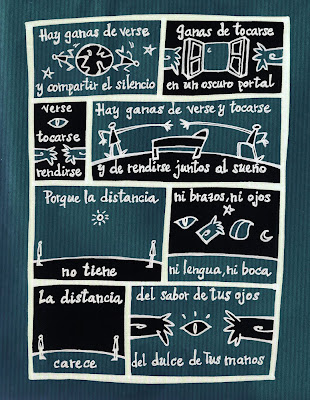 Hay ganas de verse
y compartir el silencio
ganas de tocarse
en un oscuro portal
verse
tocarse
rendirse
Hay ganas de verse y tocarse
y de rendirse juntos al sueño
Porque la distancia
no tiene
ni brazos, ni ojos
ni lengua, ni boca
la distancia
carece
del sabor de tus ojos
del dulce de tus manos